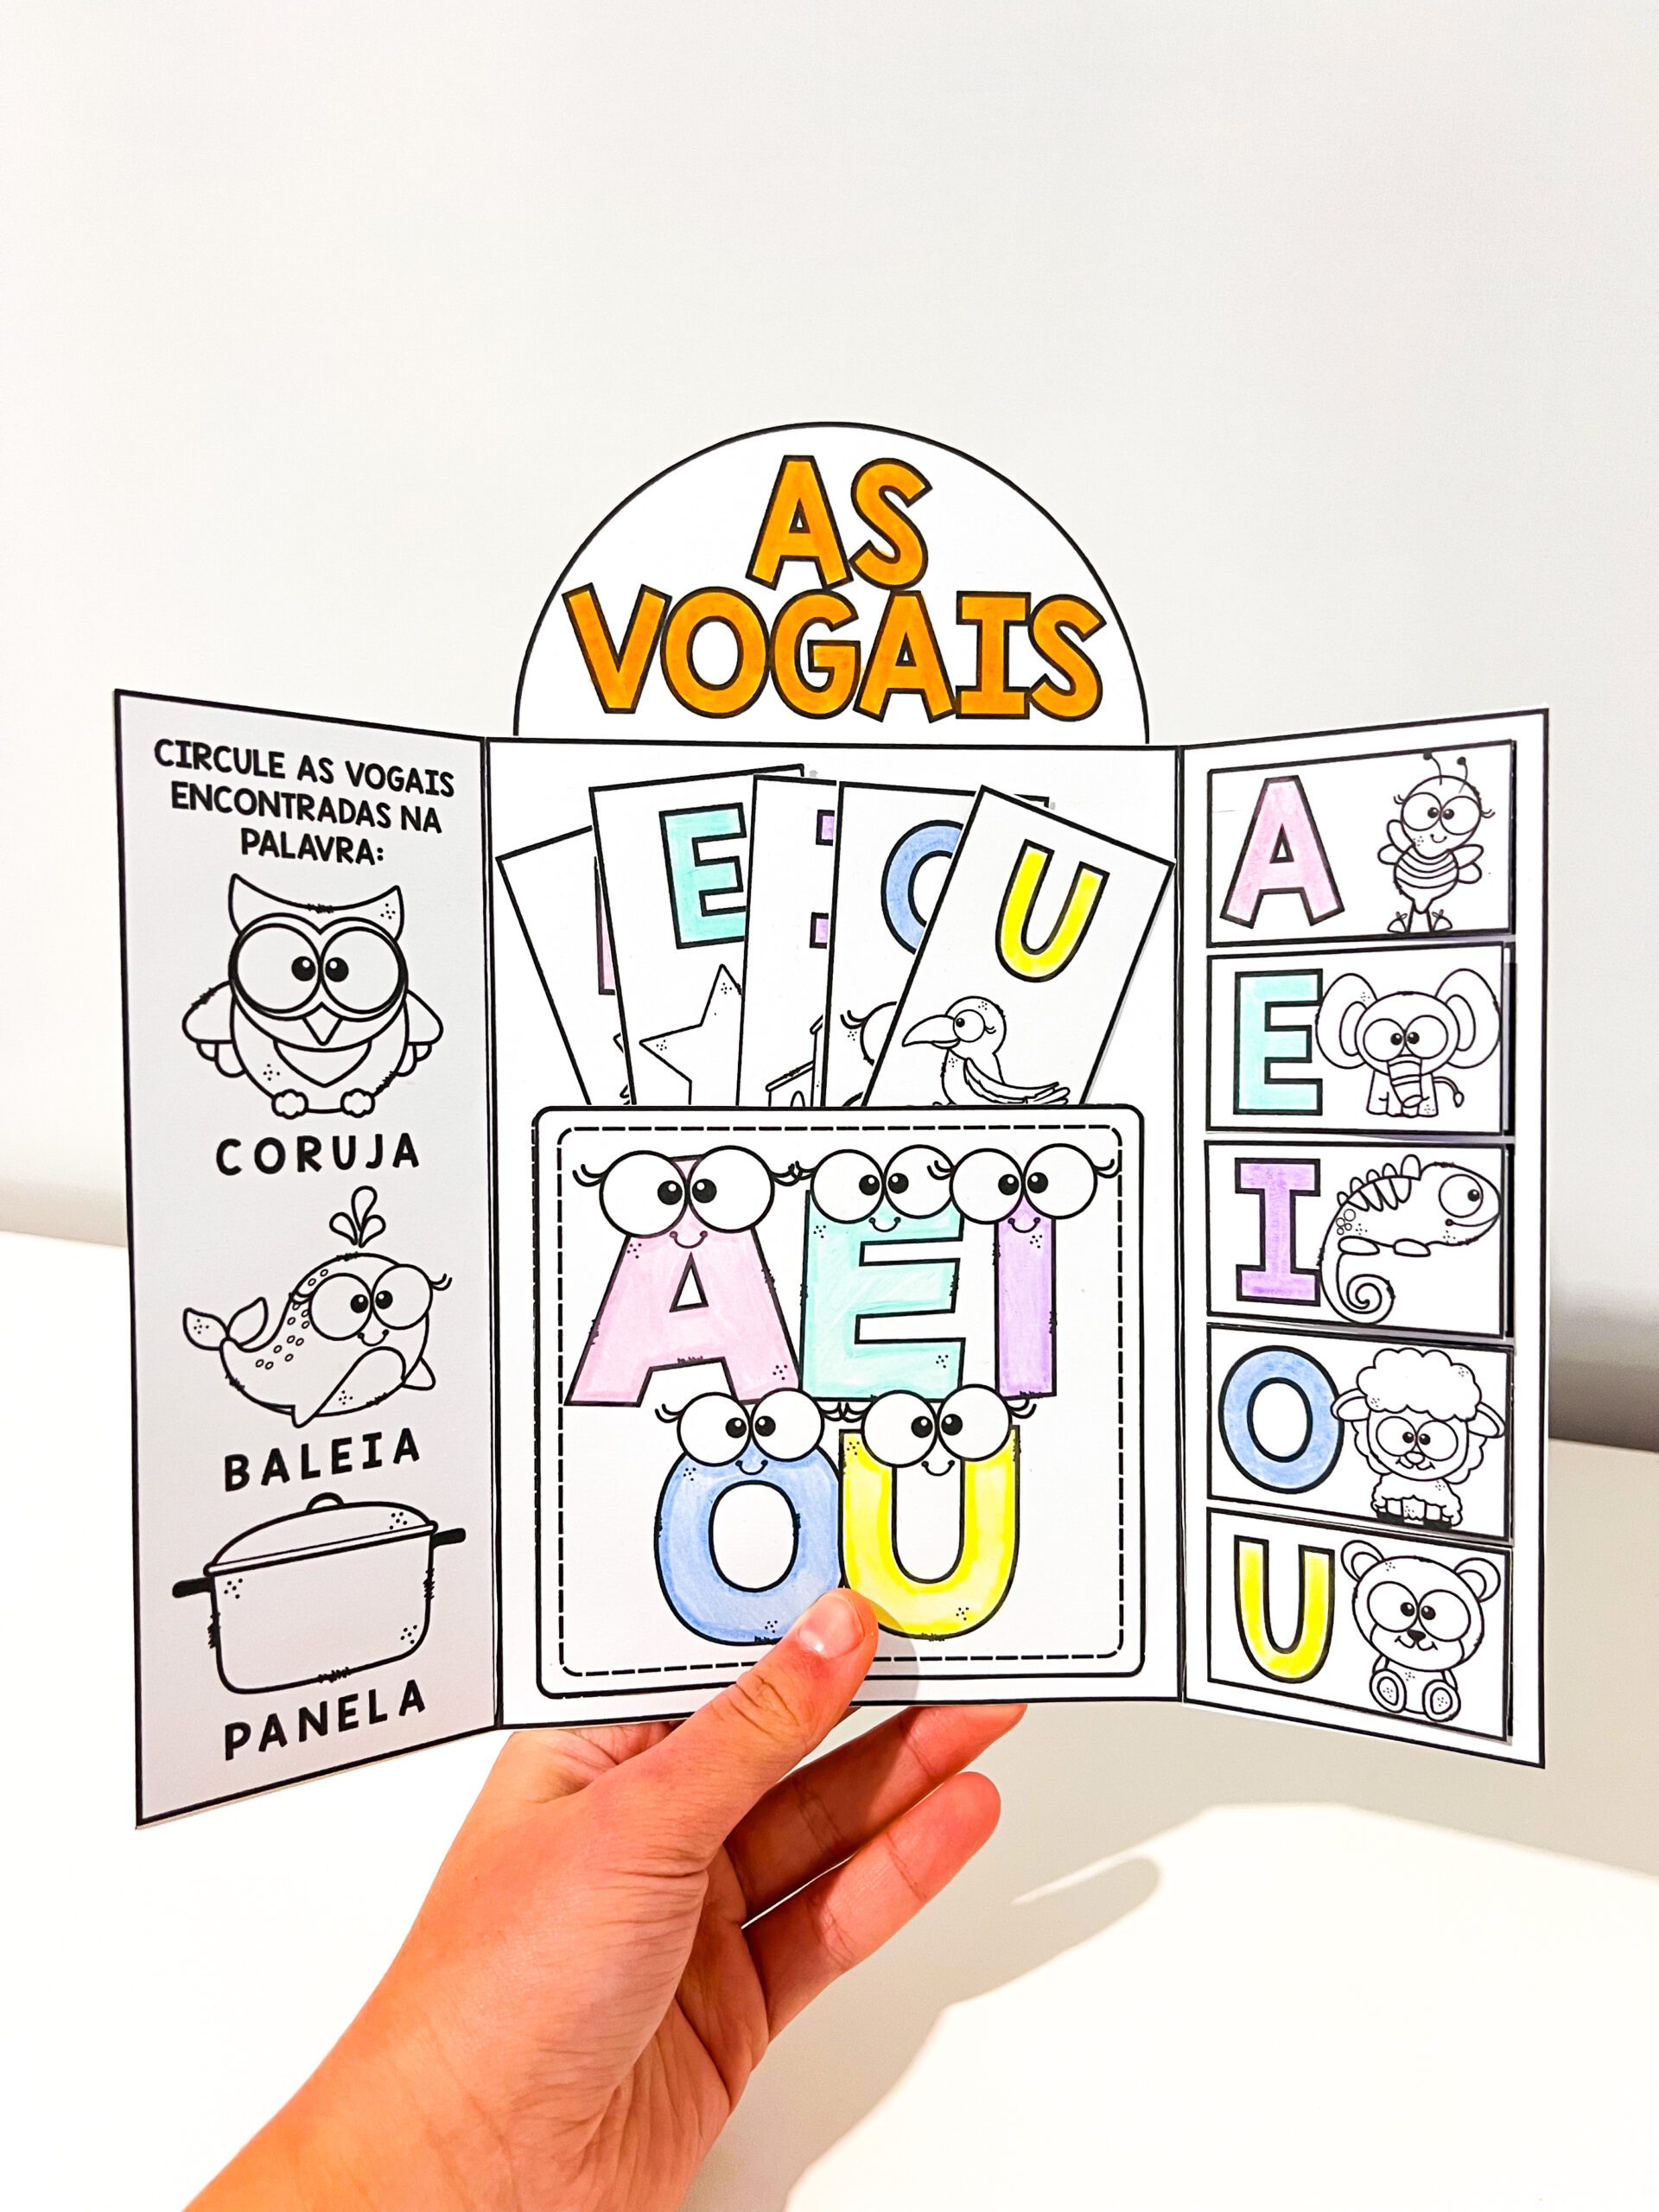 AS
VOGAIS
CIRCULE AS VOGAIS
ENCONTRADAS NA
PALAVRA:
CORUJA
BALEIA
PANELA
E
O
U
AEI
OU
A
E
I
O
U